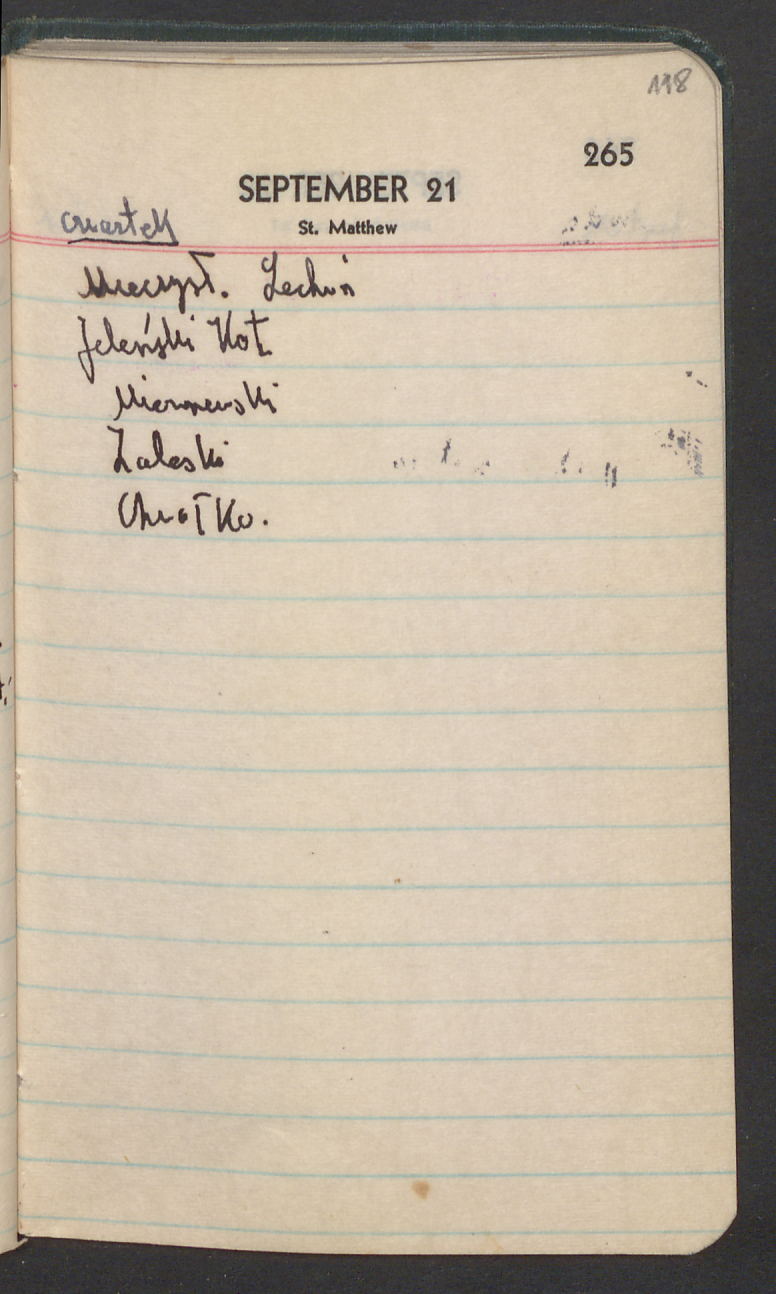 118
265
SEPTEMBER 21
czwartek
St. Matthew
Mieczysł. Lechoń
Jeleński Kot
Mierowski
Zaleski